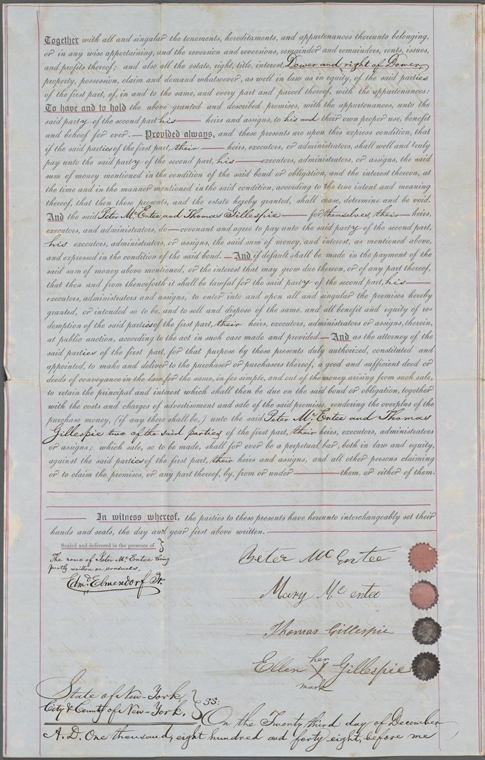 Together with all and singular the tenements, hereditaments, and appurtenances thereunto belonging,
or in any wise appertaining, and the reversion and reversions, remainder and remainders, rents, issues,
and profits thereof; and also all the estate, right, title, interest, Dower and right of Dower,
property, possession, claim and demand whatsoever, as well in law as in equity, of the said parties
of the first part, of, in and to the same, and every part and parcel thereof, with the appurtenances:
To have and to hold the above granted and described premises, with the appurtenances, unto the
said party of the second part, his heirs and assigns, to his and their own proper use, benefit
and behoof for ever. — Provided always, and these presents are upon this express condition, that
if the said parties of the first part, their heirs, executors, or administrators, shall well and truly
pay unto the said party of the second part, his executors, administrators, or assigns, the said
sum of money mentioned in the condition of the said bond or obligation, and the interest thereon, at
the time and in the manner mentioned in the said condition, according to the true intent and meaning
thereof, that then these presents, and the estate hereby granted, shall cease, determine and be void.
And the said Peter Mc Entee and Thomas Gillespie — for themselves, their heirs,
executors, and administrators, do — covenant and agree to pay unto the said party of the second part,
his executors, administrators, or assigns, the said sum of money, and interest, as mentioned above,
and expressed in the condition of the said bond. — And if default shall be made in the payment of the
said sum of money above mentioned, or the interest that may grow due thereon, or of any part thereof,
that then and from thenceforth it shall be lawful for the said party of the second part, his
executors, administrators and assigns, to enter into and upon all and singular the premises hereby
granted, or intended so to be, and to sell and dispose of the same, and all benefit and equity of re-
demption of the said parties of the first part, their heirs, executors, administrators or assigns, therein,
at public auction, according to the act in such case made and provided. — And as the attorney of the
said parties of the first part, for that purpose by these presents duly authorized, constituted and
appointed, to make and deliver to the purchaser or purchasers thereof, a good and sufficient deed or
deeds of conveyance in the law for the same, in fee simple, and out of the money arising from such sale,
to retain the principal and interest which shall then be due on the said bond or obligation, together
with the costs and charges of advertisement and sale of the said premises, rendering the overplus of the
purchase money, (if any there shall be,) unto the said Peter Mc Entee and Thomas
Gillespie two of the said parties of the first part, their heirs, executors, administrators
or assigns; which sale, so to be made, shall for ever be a perpetual bar, both in law and equity,
against the said parties of the first part, their heirs and assigns, and all other persons claiming
or to claim the premises, or any part thereof, by, from or under — them, or either of them.
In witness whereof, the parties to these presents have hereunto interchangeably set their
hands and seals, the day and year first above written.
Sealed and delivered in the presence of
The name of Peter Mc Entee being
Edmd. Elmendorf Jr.
Peter Mc Entee
Mary Mc entee
Thomas Gillespie
Ellen her X mark Gillespie
State of New-York,
City & County of New-York, } ss:
On the Twenty third day of December
A.D. One thousand, eight hundred and forty eight, before me